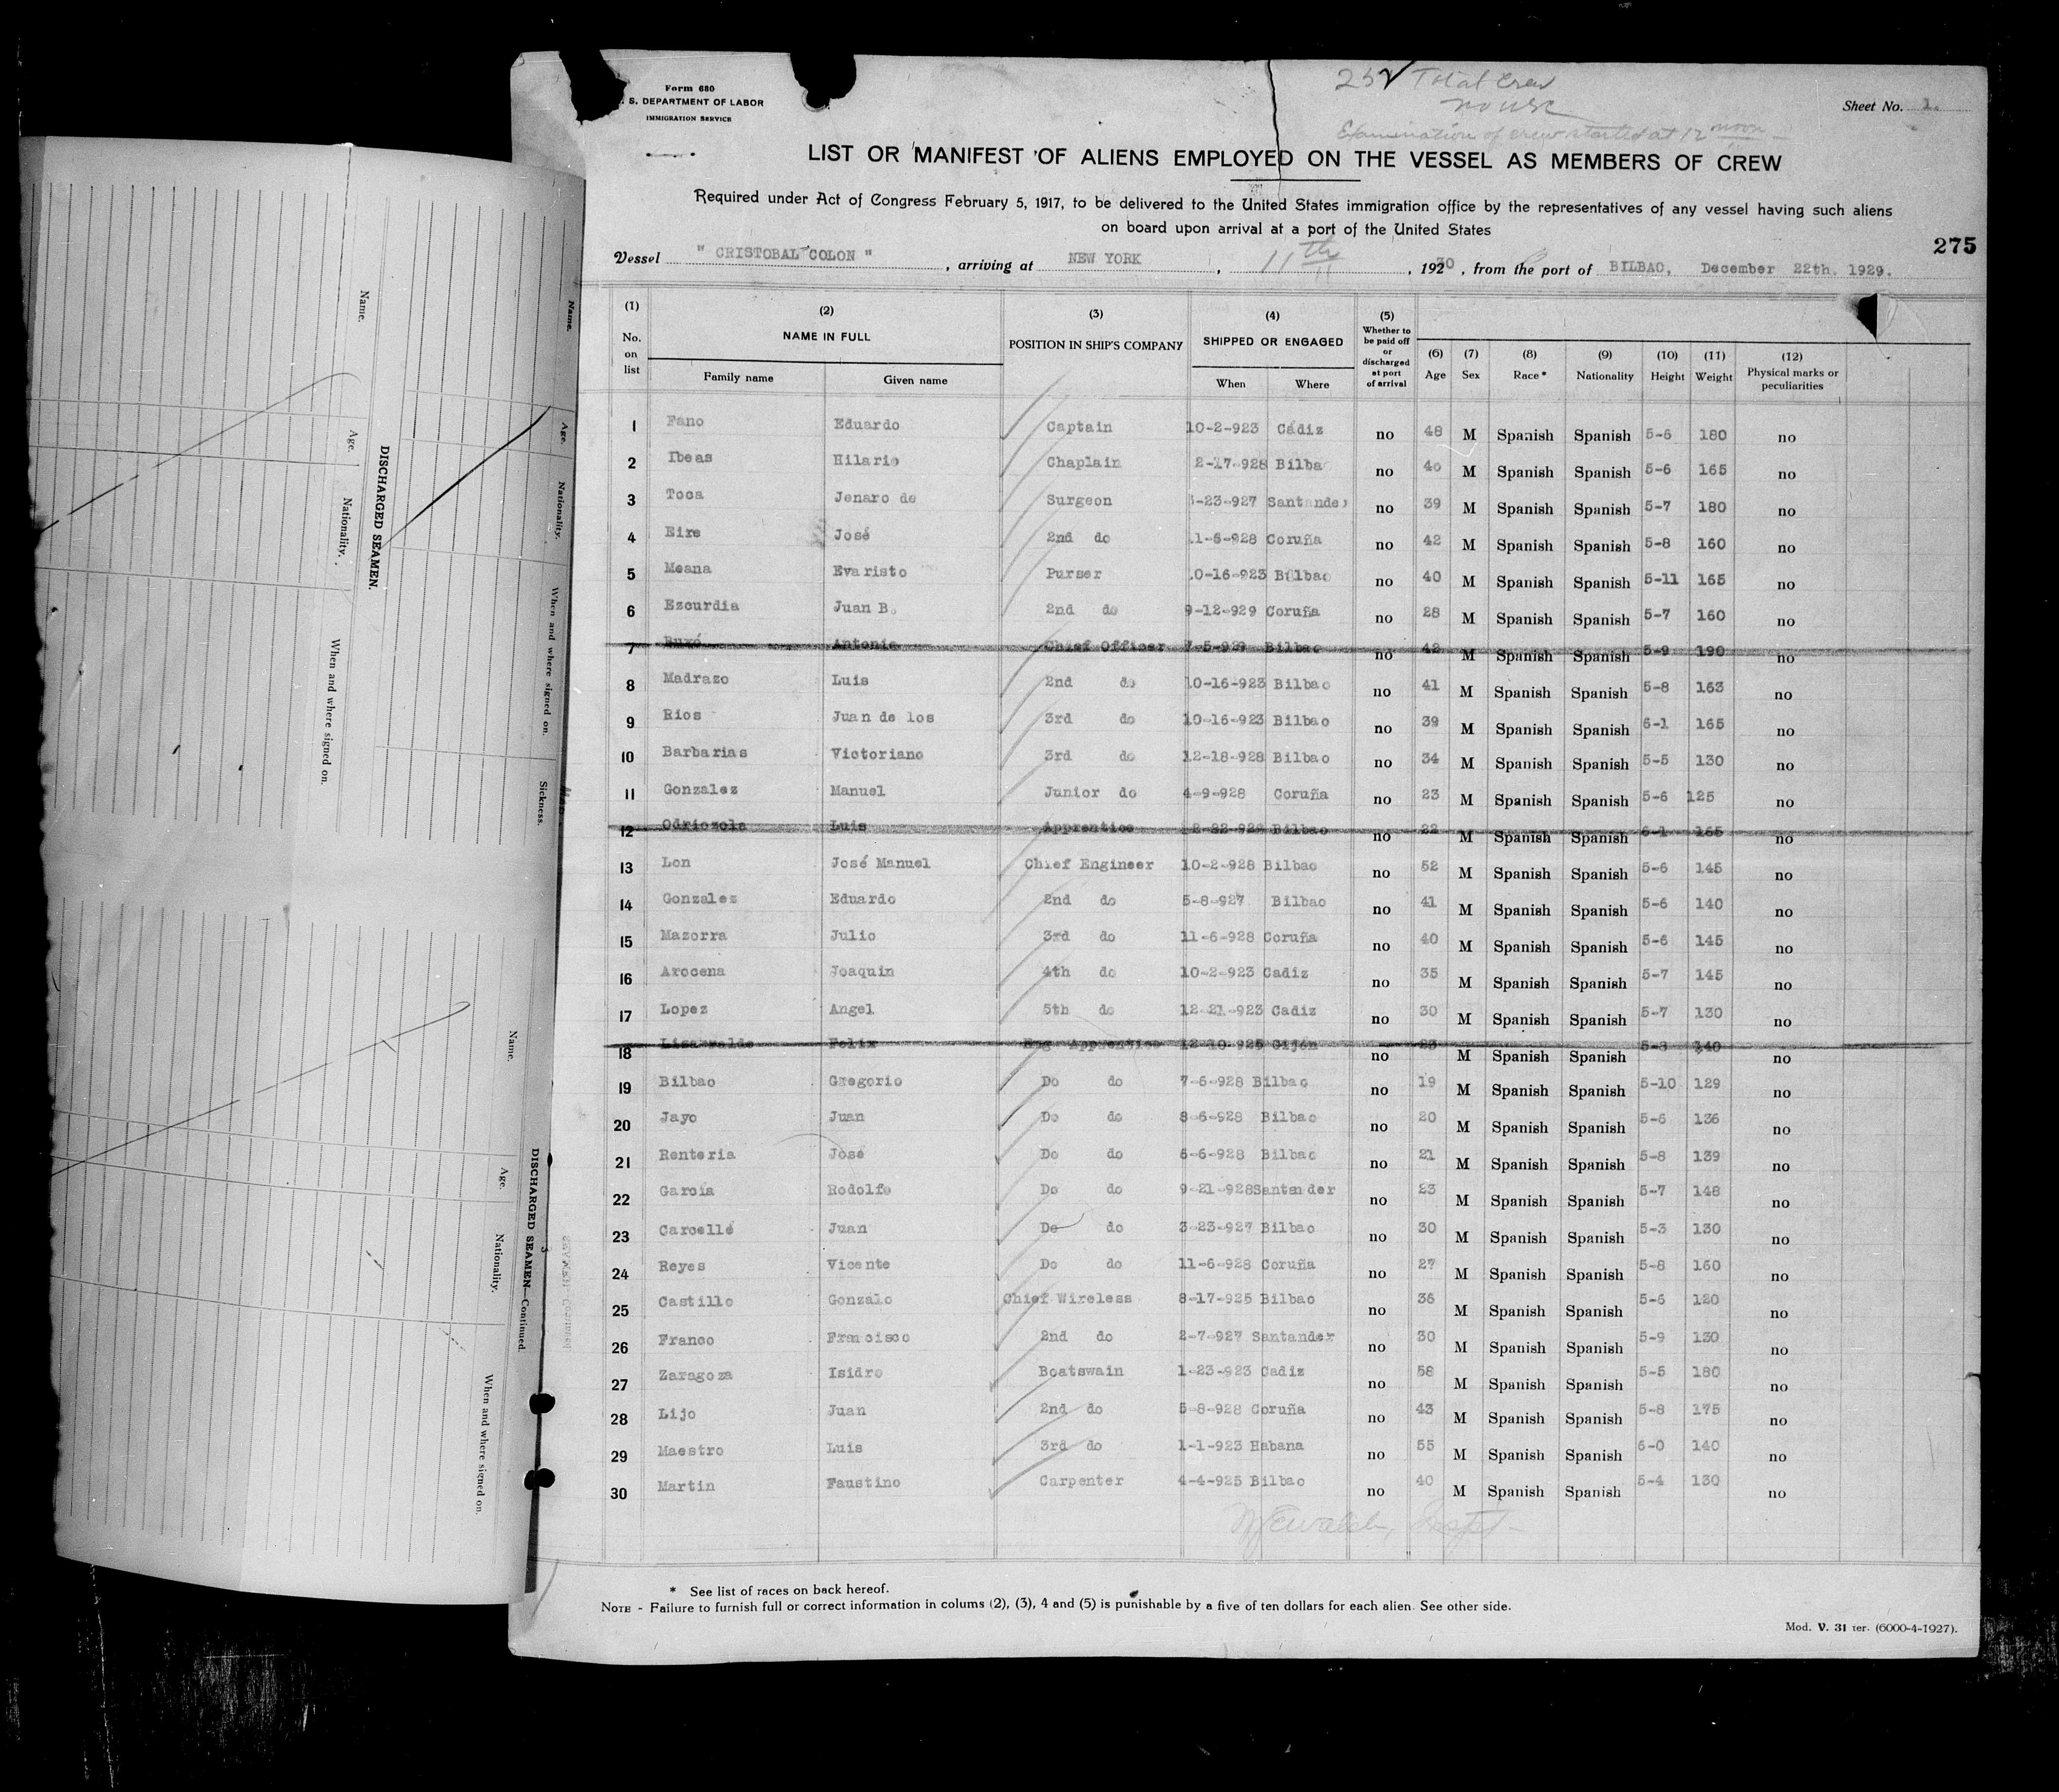 Form 680
S. DEPARTMENT OF LABOR
IMMIGRATION SERVICE
252 Total Crew
no USC
Examination of crew started at 12 noon
Sheet No. 1.
LIST OR MANIFEST OF ALIENS EMPLOYED ON THE VESSEL AS MEMBERS OF CREW
Required under Act of Congress February 5, 1917, to be delivered to the United States immigration office by the representatives of any vessel having such aliens
on board upon arrival at a port of the United States
275
Vessel " CRISTOBAL COLON " , arriving at NEW YORK , 11th , 1930 , from the port of BILBAO, December 22th. 1929.
(1) No. on list (2) NAME IN FULL Family name Given name (3) POSITION IN SHIP'S COMPANY (4) SHIPPED OR ENGAGED When Where (5) Whether to be paid off or discharged at port of arrival (6) Age (7) Sex (8) Race * (9) Nationality (10) Height (11) Weight (12) Physical marks or peculiarities
1 Fano Eduardo Captain 10-2-923 Cádiz no 48 M Spanish Spanish 5-6 180 no
2 Ibeas Hilario Chaplain 2-17-928 Bilba no 40 M Spanish Spanish 5-6 165 no
3 Toca Jenaro de Surgeon -23-927 Santander no 39 M Spanish Spanish 5-7 180 no
4 Eire José 2nd do 11-6-928 Coruña no 42 M Spanish Spanish 5-8 160 no
5 Meana Evaristo Purser 10-16-923 Bilbao no 40 M Spanish Spanish 5-11 165 no
6 Ezcurdia Juan B. 2nd do 9-12-929 Coruña no 28 M Spanish Spanish 5-7 160 no
7 Buxó Antonio Chief Officer 7-5-929 Bilbao no 42 M Spanish Spanish 5-9 190 no
8 Madrazo Luis 2nd do 10-16-923 Bilbao no 41 M Spanish Spanish 5-8 163 no
9 Rios Juan de los 3rd do 10-16-923 Bilbao no 39 M Spanish Spanish 6-1 165 no
10 Barbarias Victoriano 3rd do 12-18-928 Bilbao no 34 M Spanish Spanish 5-5 130 no
11 Gonzalez Manuel Junior do 4-9-928 Coruña no 23 M Spanish Spanish 5-6 125 no
12 Odriozola Luis Apprentice Bilbao no 22 M Spanish Spanish 6-1 165 no
13 Lon José Manuel Chief Engineer 10-2-928 Bilbao no 52 M Spanish Spanish 5-6 145 no
14 Gonzalez Eduardo 2nd do 5-8-927 Bilbao no 41 M Spanish Spanish 5-6 140 no
15 Mazorra Julio 3rd do 11-6-928 Coruña no 40 M Spanish Spanish 5-6 145 no
16 Arocena Joaquin 4th do 10-2-923 Cadiz no 35 M Spanish Spanish 5-7 145 no
17 Lopez Angel 5th do 12-21-923 Cadiz no 30 M Spanish Spanish 5-7 130 no
18 Felix Eng. Apprentice 12-10-925 Gijón no 23 M Spanish Spanish 5-3 140 no
19 Bilbao Gregorio Do do 7-6-928 Bilbao no 19 M Spanish Spanish 5-10 129 no
20 Jayo Juan Do do 8-6-928 Bilbao no 20 M Spanish Spanish 5-6 136 no
21 Renteria José Do do 6-6-928 Bilbao no 21 M Spanish Spanish 5-8 139 no
22 García Rodolfo Do do 9-21-928 Santander no 23 M Spanish Spanish 5-7 148 no
23 Carcellé Juan Do do 3-23-927 Bilbao no 30 M Spanish Spanish 5-3 130 no
24 Reyes Vicente Do do 11-6-928 Coruña no 27 M Spanish Spanish 5-8 160 no
25 Castillo Gonzalo Chief Wireless 8-17-925 Bilbao no 36 M Spanish Spanish 5-6 120 no
26 Franco Francisco 2nd do 2-7-927 Santander no 30 M Spanish Spanish 5-9 130 no
27 Zaragoza Isidro Boatswain 1-23-923 Cadiz no 58 M Spanish Spanish 5-5 180 no
28 Lijo Juan 2nd do 5-8-928 Coruña no 43 M Spanish Spanish 5-8 175 no
29 Maestro Luis 3rd do 1-1-923 Habana no 55 M Spanish Spanish 6-0 140 no
30 Martin Faustino Carpenter 4-4-925 Bilbao no 40 M Spanish Spanish 5-4 130 no
* See list of races on back hereof.
NOTE - Failure to furnish full or correct information in colums (2), (3), 4 and (5) is punishable by a five of ten dollars for each alien. See other side.
Mod. V. 31 ter. (6000-4-1927).
Name. Age. Nationality. When and where signed on. Sickness.
DISCHARGED SEAMEN.
Name. Age. Nationality. When and where signed on.
DISCHARGED SEAMEN—Continued.
Name. Age. Nationality. When and where signed on.